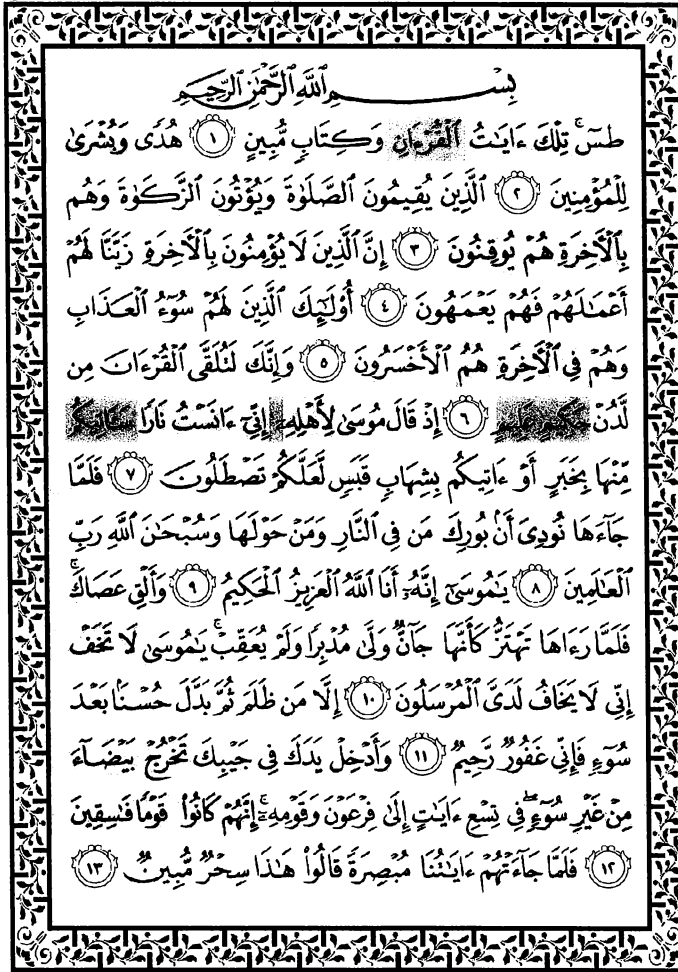 بِسْمِ ٱللَّهِ ٱلرَّحْمَٰنِ ٱلرَّحِيمِ
طسٓۚ تِلْكَ ءَايَٰتُ ٱلْقُرْءَانِ وَكِتَابٍ مُّبِينٍ ١ هُدًى وَبُشْرَىٰ
لِلْمُؤْمِنِينَ ٢ ٱلَّذِينَ يُقِيمُونَ ٱلصَّلَوٰةَ وَيُؤْتُونَ ٱلزَّكَوٰةَ وَهُم
بِٱلْأَخِرَةِ هُمْ يُوقِنُونَ ٣ إِنَّ ٱلَّذِينَ لَا يُؤْمِنُونَ بِٱلْأَخِرَةِ زَيَّنَّا لَهُمْ
أَعْمَٰلَهُمْ فَهُمْ يَعْمَهُونَ ٤ أُوْلَٰٓئِكَ ٱلَّذِينَ لَهُمْ سُوٓءُ ٱلْعَذَابِ
وَهُمْ فِى ٱلْأَخِرَةِ هُمُ ٱلْأَخْسَرُونَ ٥ وَإِنَّكَ لَتُلَقَّى ٱلْقُرْءَانَ مِن
لَّدُنْ حَكِيمٍ عَلِيمٍ ٦ إِذْ قَالَ مُوسَىٰ لِأَهْلِهِۦٓ إِنِّىٓ ءَانَسْتُ نَارًا سَـَٔاتِيكُم
مِّنْهَا بِخَبَرٍ أَوْ ءَاتِيكُم بِشِهَابٍ قَبَسٍ لَّعَلَّكُمْ تَصْطَلُونَ ٧ فَلَمَّا
جَآءَهَا نُودِىَ أَنۢ بُورِكَ مَن فِى ٱلنَّارِ وَمَنْ حَوْلَهَا وَسُبْحَٰنَ ٱللَّهِ رَبِّ
ٱلْعَٰلَمِينَ ٨ يَٰمُوسَىٰٓ إِنَّهُۥٓ أَنَا ٱللَّهُ ٱلْعَزِيزُ ٱلْحَكِيمُ ٩ وَأَلْقِ عَصَاكَۚ
فَلَمَّا رَءَاهَا تَهْتَزُّ كَأَنَّهَا جَآنٌّ وَلَّىٰ مُدْبِرًا وَلَمْ يُعَقِّبْۚ يَٰمُوسَىٰ لَا تَخَفْ
إِنِّى لَا يَخَافُ لَدَىَّ ٱلْمُرْسَلُونَ ١٠ إِلَّا مَن ظَلَمَ ثُمَّ بَدَّلَ حُسْنًۢا بَعْدَ
سُوٓءٍ فَإِنِّى غَفُورٌ رَّحِيمٌ ١١ وَأَدْخِلْ يَدَكَ فِى جَيْبِكَ تَخْرُجْ بَيْضَآءَ
مِنْ غَيْرِ سُوٓءٍۖ فِى تِسْعِ ءَايَٰتٍ إِلَىٰ فِرْعَوْنَ وَقَوْمِهِۦٓۚ إِنَّهُمْ كَانُوا۟ قَوْمًا فَٰسِقِينَ
١٢ فَلَمَّا جَآءَتْهُمْ ءَايَٰتُنَا مُبْصِرَةً قَالُوا۟ هَٰذَا سِحْرٌ مُّبِينٌ ١٣